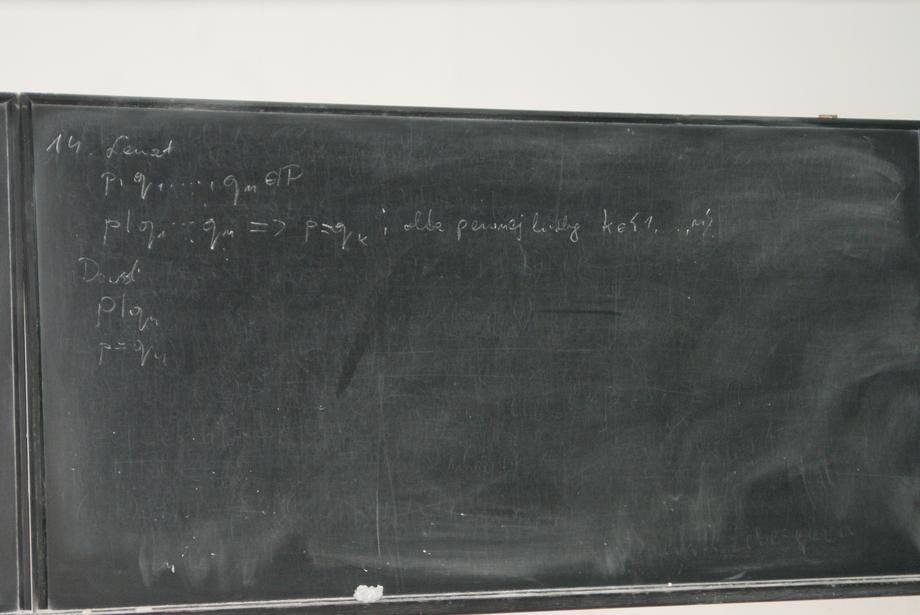 14. Lemat
p, q₁, ..., qₙ ∈ P
p | q₁ ... qₙ => p = qₖ dla pewnej liczby k ∈ {1, ..., n}
Dowód
p | qₙ
p = qₙ